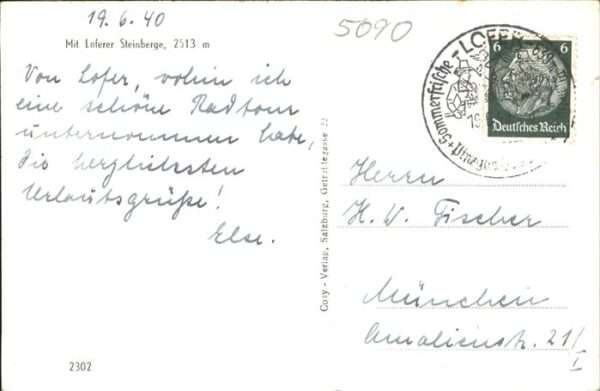 19.6.40
5090
Mit Loferer Steinberge, 2513 m
Von Lofer, wohin ich
eine schöne Radtour
unternommen habe,
die herzlichsten
Urlaubsgrüße!
Else.
2302
Cosy - Verlag, Salzburg, Getreidegasse 22
Sommerfrische LOFER
6 6
Deutsches Reich
Herrn
H. W. Fischer
München
Amalienstr. 21/I